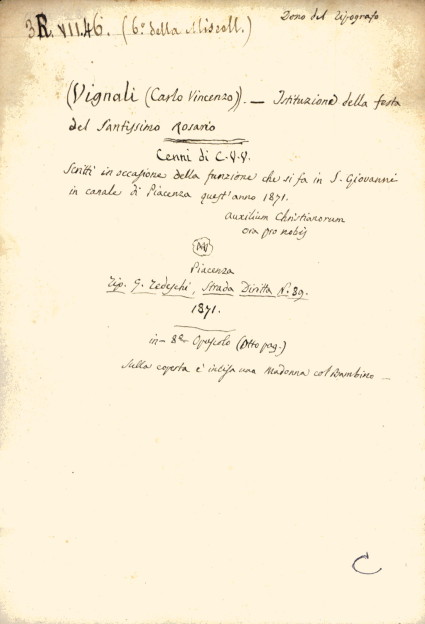 3R. VII.46. (6º della Miscell.)
Dono del Tipografo
(Vignali (Carlo Vincenzo)). — Istituzione della festa
del Santissimo Rosario
Cenni di C.V.V.
Scritti in occasione della funzione che si fa in S. Giovanni
in canale di Piacenza quest'anno 1871.
Auxilium Christianorum
Ora pro nobis
Piacenza
Tip. G. Tedeschi, Strada Diritta N. 89.
1871.
in-8º Opuscolo (Otto pag.)
Sulla coperta è incisa una Madonna col Bambino —
C